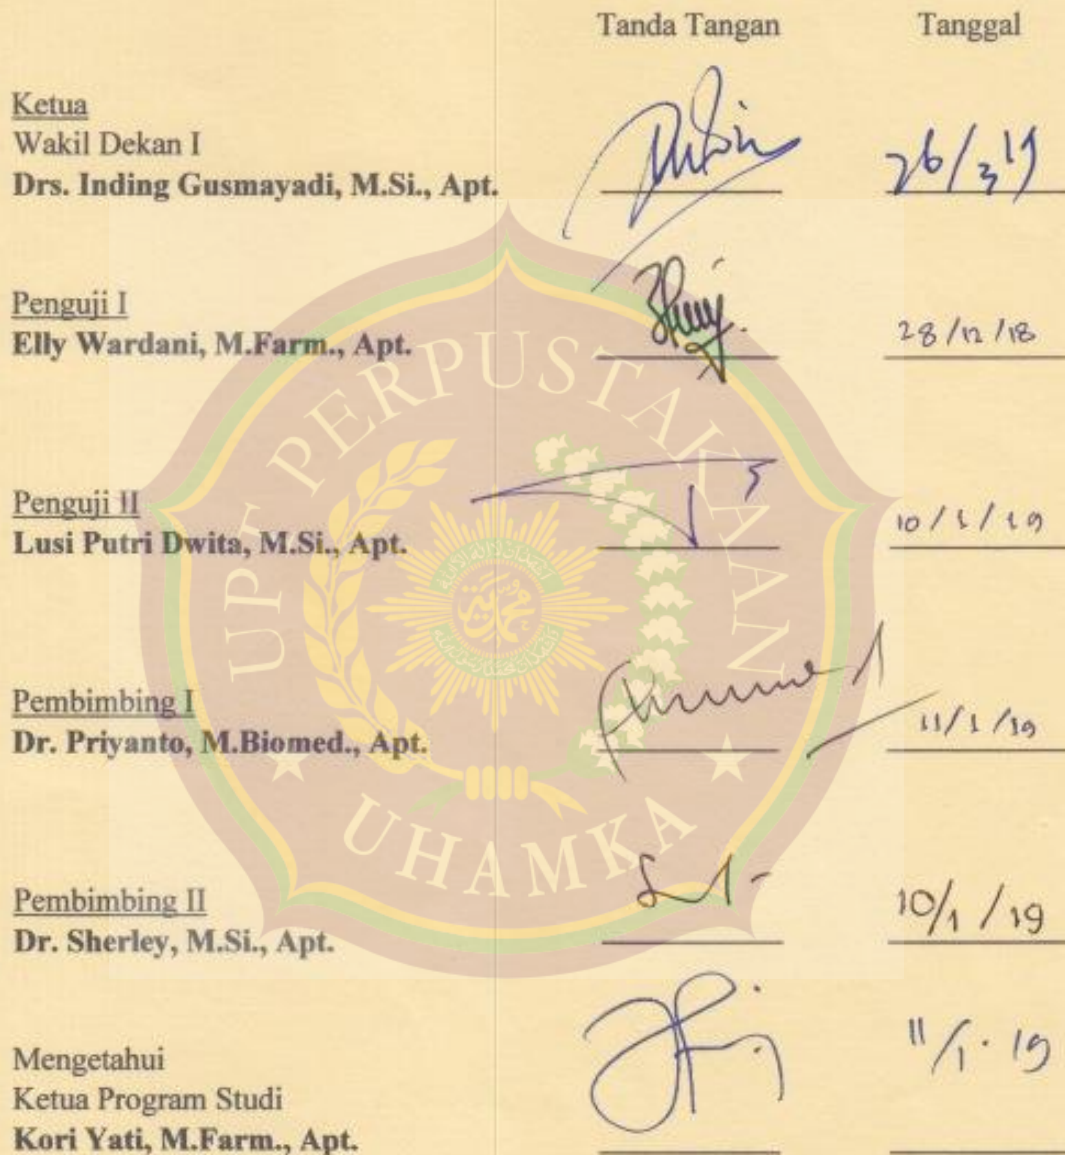 Tanda Tangan Tanggal
Ketua
Wakil Dekan I
Drs. Inding Gusmayadi, M.Si., Apt. 26/3 19
Penguji I
Elly Wardani, M.Farm., Apt. 28/12/18
Penguji II
Lusi Putri Dwita, M.Si., Apt. 10/1/19
Pembimbing I
Dr. Priyanto, M.Biomed., Apt. 11/1/19
Pembimbing II
Dr. Sherley, M.Si., Apt. 10/1/19
Mengetahui
Ketua Program Studi
Kori Yati, M.Farm., Apt. 11/1.19
UPT PERPUSTAKAAN
UHAMKA